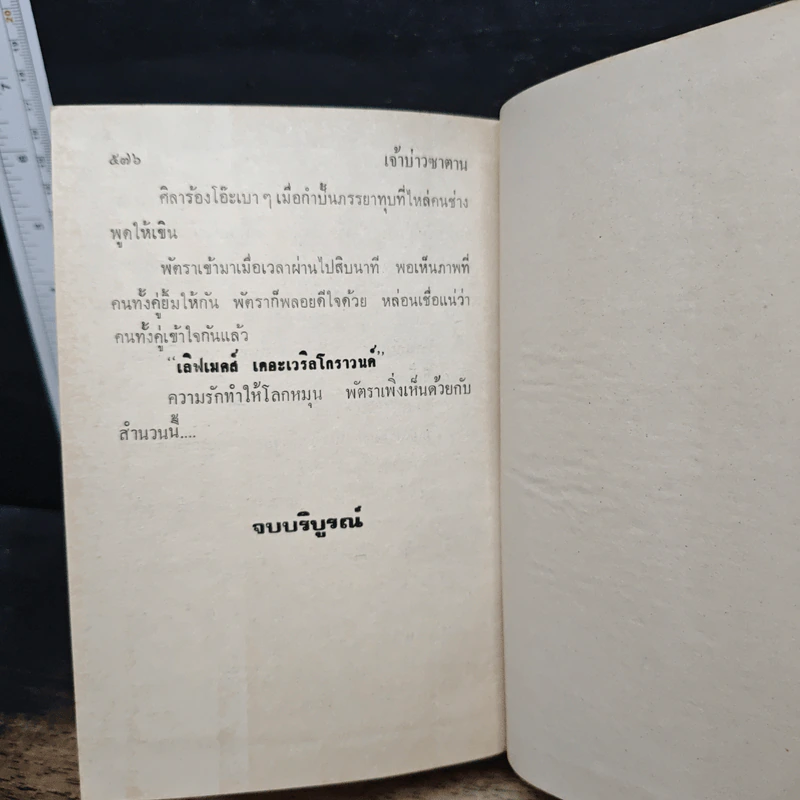 ๕๗๖ เจ้าบ่าวซาตาน
ศิลาร้องโอ๊ะเบา ๆ เมื่อกำปั้นภรรยาทุบที่ไหล่คนช่าง
พูดให้เขิน
พัตราเข้ามาเมื่อเวลาผ่านไปสิบนาที พอเห็นภาพที่
คนทั้งคู่ยิ้มให้กัน พัตราก็พลอยดีใจด้วย หล่อนเชื่อแน่ว่า
คนทั้งคู่เข้าใจกันแล้ว
“เลิฟเมคส์ เดอะเวริลโกราวนด์”
ความรักทำให้โลกหมุน พัตราเพิ่งเห็นด้วยกับ
สำนวนนี้....
จบบริบูรณ์